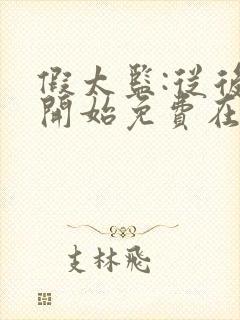 假太監:從後
開始免費在
支林飛